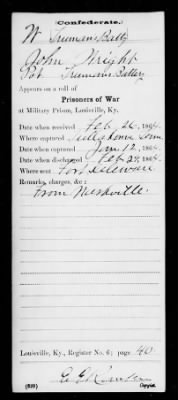 Confederate.
W Truman's Batty
John Wright
Pvt Truman's Battery
Appears on a roll of
Prisoners of War
at Military Prison, Louisville, Ky.
Date when received Feb 26, 1864.
Where captured Tullahoma Tenn
Date when captured Jan 12, 1864.
Date when discharged Feb 29, 1864.
Where sent Fort Delaware
Remarks, charges, &c.:
From Nashville.
Louisville, Ky., Register No. 6; page 40
(639)
Copyist.